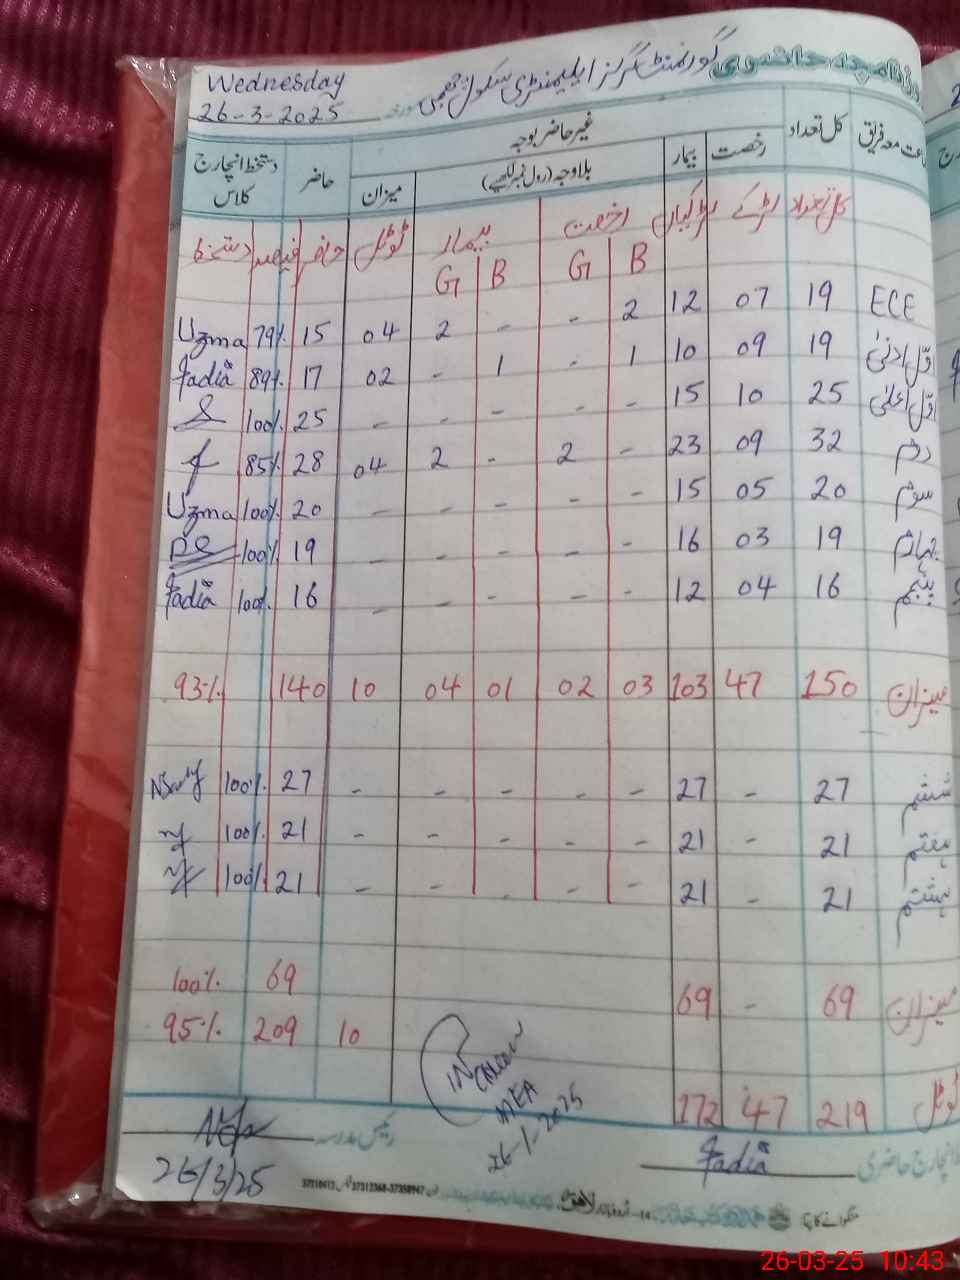 روزنامچہ حاضری گورنمنٹ گرلز ایلیمنٹری سکول
Wednesday
26-3-2025
جماعت معہ فریق کل تعداد رخصت بیمار غیر حاضر بوجہ حاضر دستخط انچارج کلاس
بلاوجہ (رول نمبر لکھیے) میزان
کل تعداد لڑکے لڑکیاں رخصت بیمار ٹوٹل حاضر فیصد دستخط
B G B G
ECE 19 07 12 2 - - 2 04 15 79% Uzma
اوّل ادنیٰ 19 09 10 1 - 1 - 02 17 89% Sadia
اوّل اعلیٰ 25 10 15 - - - - - 25 100%
دوم 32 09 23 - 2 - 2 04 28 85%
سوم 20 05 15 - - - - - 20 100% Uzma
چہارم 19 03 16 - - - - - 19 100%
پنجم 16 04 12 - - - - - 16 100% Sadia
میزان 150 47 103 03 02 01 04 10 140 93%
ششم 27 - 27 - - - - - 27 100%
ہفتم 21 - 21 - - - - - 21 100%
ہشتم 21 - 21 - - - - - 21 100%
69 100%
میزان 69 - 69
10 209 95%
ٹوٹل 219 47 172
MEA
26-1-2025
انچارج حاضری Sadia
رئیس مدرسہ
26/3/25
منگوانے کا پتہ
لاہور
37310413 37313368-37358947
26-03-25 10:43